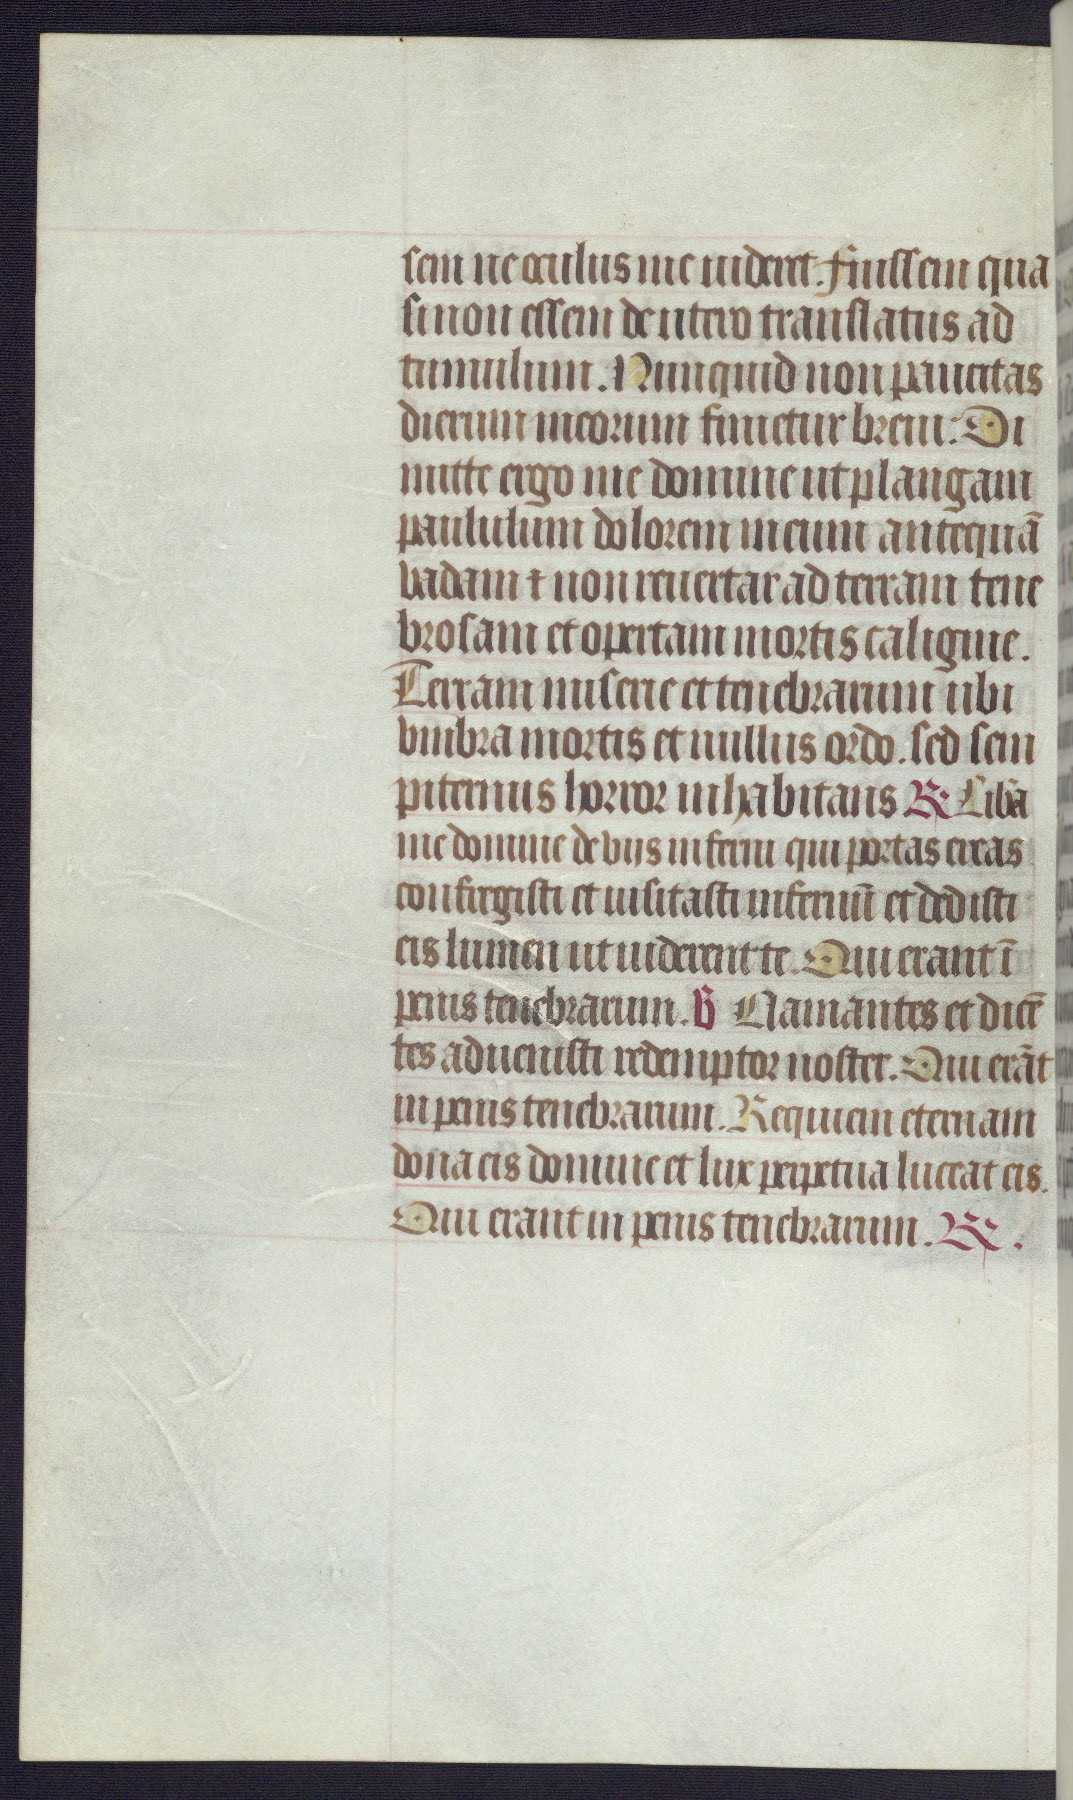 sem ne oculus me uideret. fuissem qua
si non essem de utero translatus ad
tumulum. Nunquid non paucitas
dierum meorum finietur breui: Di
mitte ergo me domine ut plangam
paululum dolorem meum antequã
vadam ⁊ non reuertar ad terram tene
brosam et opertam mortis caligine.
Terram miserie et tenebrarum ubi
vmbra mortis et nullus ordo. sed sem
piternus horror inhabitans ℟ Liba̅
me domine de vijs inferni qui portas ereas
confregisti et uisitasti infernu̅ et dedisti
eis lumen ut uiderent te. Qui erant i̅
penis tenebrarum. ℣ Clamantes et dice̅
tes aduenisti redemptor noster. Qui erãt
in penis tenebrarum. Requiem eternam
dona eis domine et lux perpetua luceat eis.
Qui erant in penis tenebrarum. ℟.